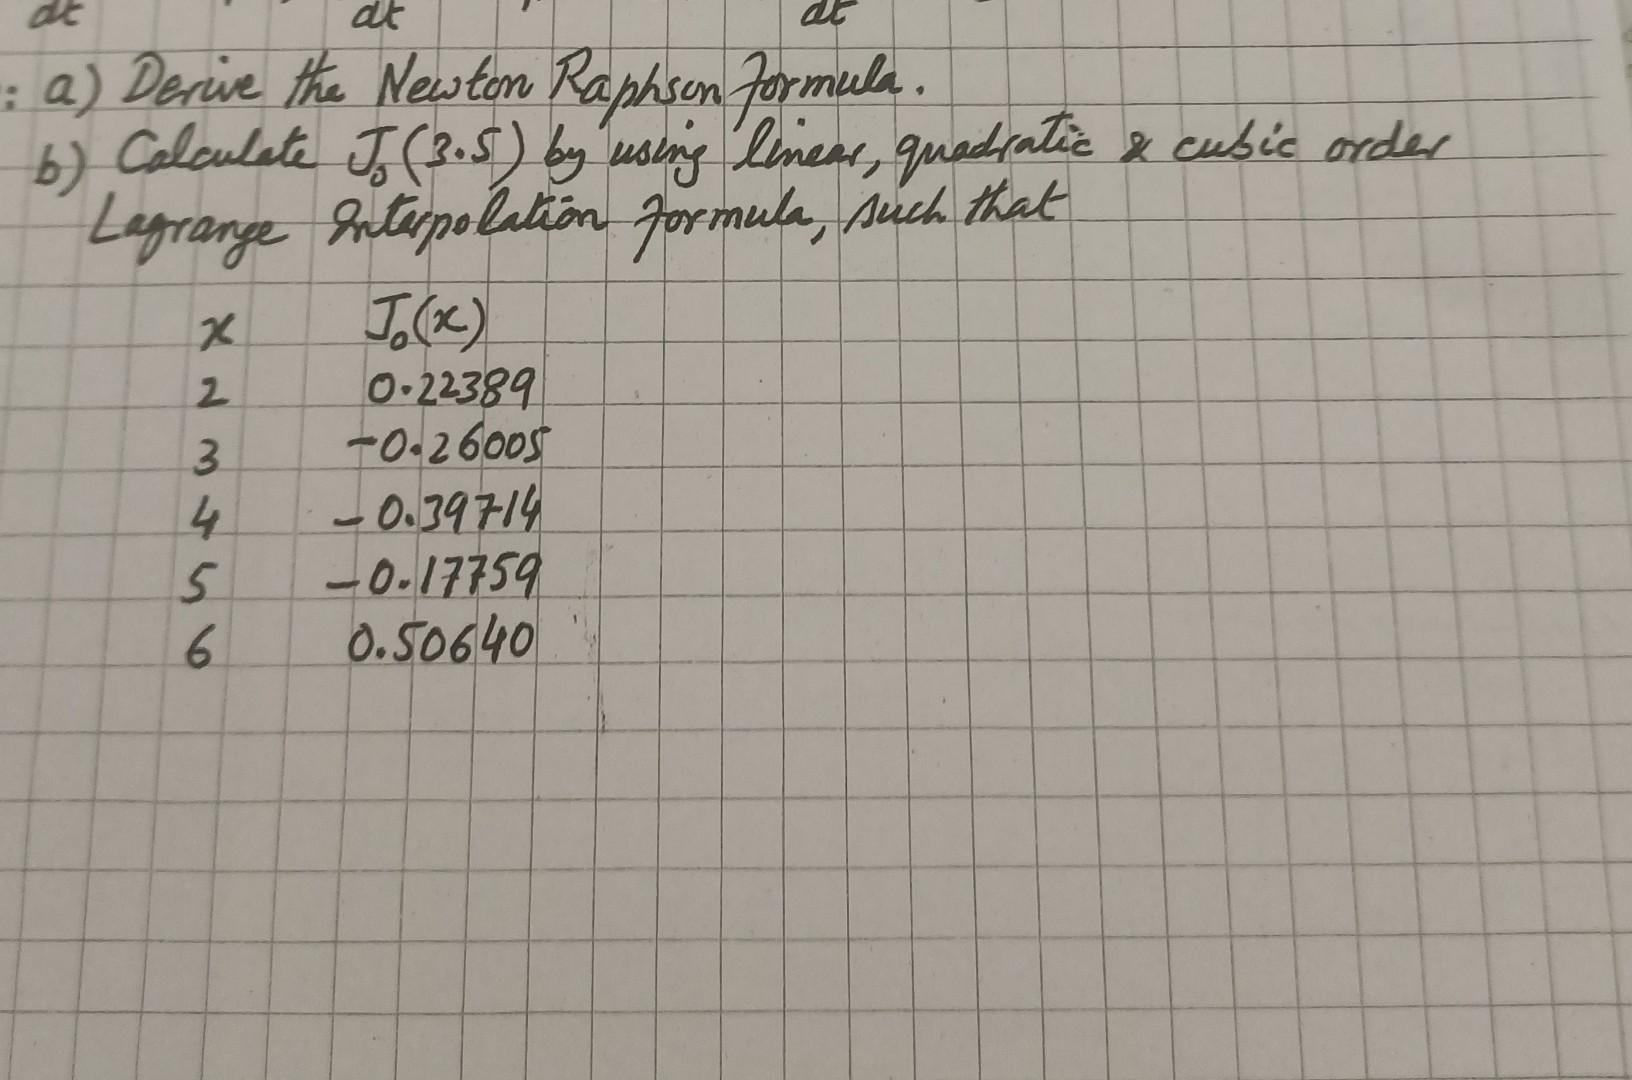 dt dt dt
: a) Derive the Newton Raphson formula.
b) Calculate J₀(3.5) by using linear, quadratic & cubic order
Lagrange Interpolation formula, such that
x J₀(x)
2 0.22389
3 -0.26005
4 -0.39714
5 -0.17759
6 0.50640